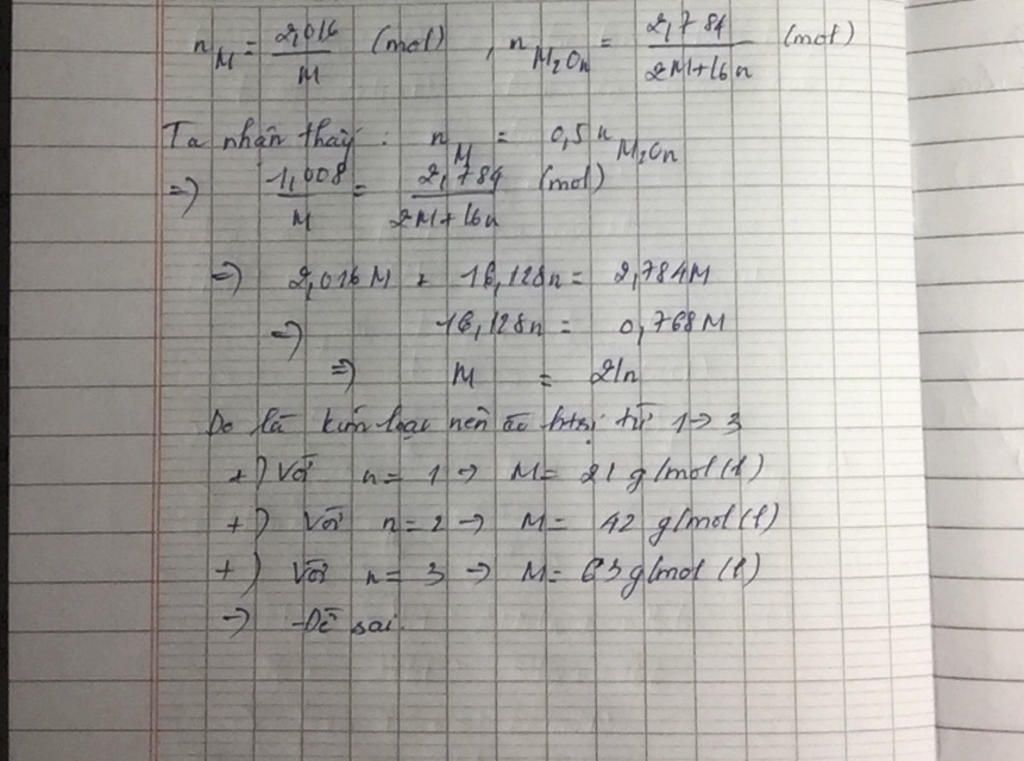 n_M = 2,016/M (mol) , n_M₂Oₙ = 2,784/2M+16n (mol)
Ta nhận thấy : n_M = 0,5 n_M₂Oₙ
=> 1,008/M = 2,784/2M+16n (mol)
=> 2,016M + 16,128n = 2,784M
=> 16,128n = 0,768M
=> M = 21n
Do là kim loại nên từ 1→3
+) Với n = 1 → M = 21 g/mol (l)
+) Với n = 2 → M = 42 g/mol (l)
+) Với n = 3 → M = 63 g/mol (l)
→ Đề sai.